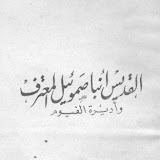 القديس أنبا صموئيل المعترف
وأديرة الفيوم